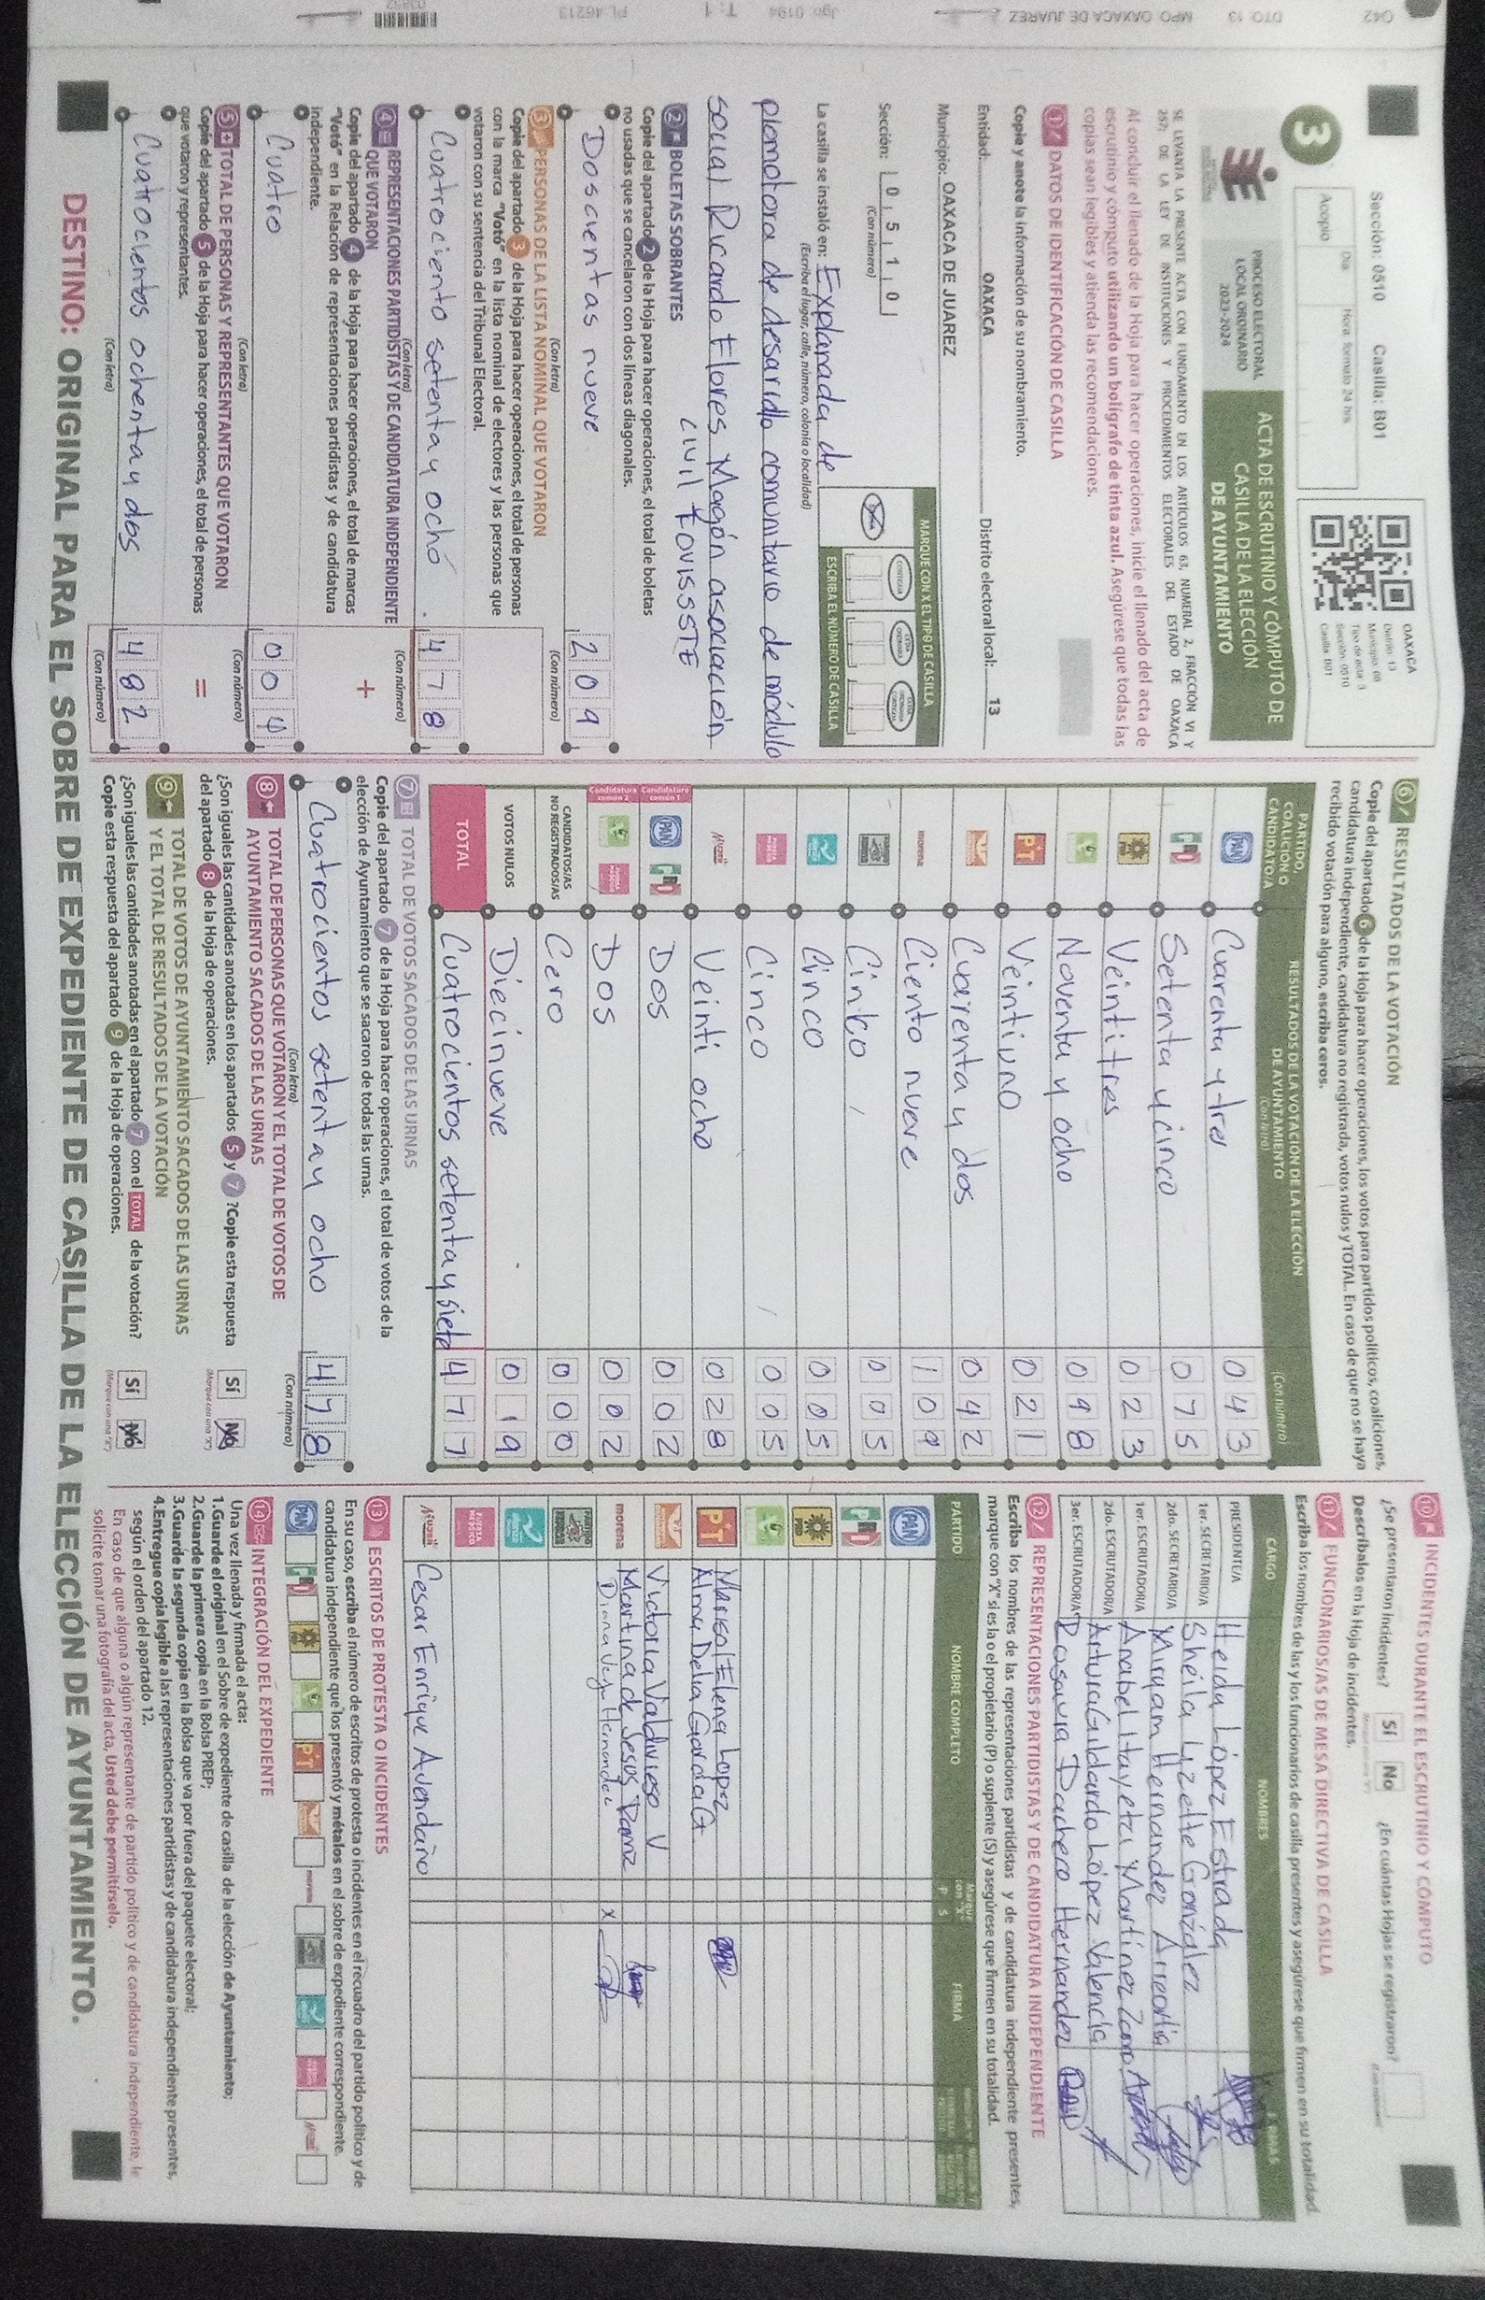 Sección: 0510 Casilla: B01
Día Hora formato 24 hrs
Acopio
OAXACA
Distrito: 13
Municipio: 68
Tipo de acta: 3
Sección: 0510
Casilla: B01
3
PROCESO ELECTORAL
LOCAL ORDINARIO
2023-2024
ACTA DE ESCRUTINIO Y CÓMPUTO DE
CASILLA DE LA ELECCIÓN
DE AYUNTAMIENTO
SE LEVANTA LA PRESENTE ACTA CON FUNDAMENTO EN LOS ARTÍCULOS 63, NUMERAL 2, FRACCIÓN VI Y
257; DE LA LEY DE INSTITUCIONES Y PROCEDIMIENTOS ELECTORALES DEL ESTADO DE OAXACA
Al concluir el llenado de la Hoja para hacer operaciones, inicie el llenado del acta de
escrutinio y cómputo utilizando un bolígrafo de tinta azul. Asegúrese que todas las
copias sean legibles y atienda las recomendaciones.
1 DATOS DE IDENTIFICACIÓN DE CASILLA
Copie y anote la información de su nombramiento.
Entidad: OAXACA Distrito electoral local: 13
Municipio: OAXACA DE JUAREZ
Sección: 0 5 1 0
(Con número)
MARQUE CON X EL TIPO DE CASILLA
ESCRIBA EL NÚMERO DE CASILLA
La casilla se instaló en: Explanada de
(Escriba el lugar, calle, número, colonia o localidad)
promotora de desarrollo comunitario de módulo
social Ricardo Flores Magón asociación
civil FOVISSSTE
2 BOLETAS SOBRANTES
Copie del apartado 2 de la Hoja para hacer operaciones, el total de boletas
no usadas que se cancelaron con dos líneas diagonales.
Doscientas nueve 2 0 9
(Con letra) (Con número)
3 PERSONAS DE LA LISTA NOMINAL QUE VOTARON
Copie del apartado 3 de la Hoja para hacer operaciones, el total de personas
con la marca "Votó" en la lista nominal de electores y las personas que
votaron con su sentencia del Tribunal Electoral.
Cuatrociento setenta y ocho 4 7 8
(Con letra) (Con número)
4 REPRESENTACIONES PARTIDISTAS Y DE CANDIDATURA INDEPENDIENTE
QUE VOTARON
Copie del apartado 4 de la Hoja para hacer operaciones, el total de marcas
"Votó" en la Relación de representaciones partidistas y de candidatura
independiente.
+
Cuatro 0 0 4
(Con letra) (Con número)
5 TOTAL DE PERSONAS Y REPRESENTANTES QUE VOTARON
Copie del apartado 5 de la Hoja para hacer operaciones, el total de personas
que votaron y representantes.
=
Cuatrocientos ochenta y dos 4 8 2
(Con letra) (Con número)
6 RESULTADOS DE LA VOTACIÓN
Copie del apartado 6 de la Hoja para hacer operaciones, los votos para partidos políticos, coaliciones,
candidatura independiente, candidatura no registrada, votos nulos y TOTAL. En caso de que no se haya
recibido votación para alguno, escriba ceros.
PARTIDO,
COALICIÓN O
CANDIDATO/A
RESULTADOS DE LA VOTACIÓN DE LA ELECCIÓN
DE AYUNTAMIENTO
(Con letra) (Con número)
PAN Cuarenta y tres 0 4 3
PRI Setenta y cinco 0 7 5
Veintitres 0 2 3
Noventa y ocho 0 9 8
PT Veintiuno 0 2 1
Cuarenta y dos 0 4 2
morena Ciento nueve 1 0 9
Cinco 0 0 5
Cinco 0 0 5
Cinco 0 0 5
Veinti ocho 0 2 8
Candidatura común 1 PAN PRI Dos 0 0 2
Candidatura común 2 Dos 0 0 2
CANDIDATOS/AS
NO REGISTRADOS/AS Cero 0 0 0
VOTOS NULOS Diecinueve 0 1 9
TOTAL Cuatrocientos setenta y siete 4 7 7
7 TOTAL DE VOTOS SACADOS DE LAS URNAS
Copie del apartado 7 de la Hoja para hacer operaciones, el total de votos de la
elección de Ayuntamiento que se sacaron de todas las urnas.
Cuatrocientos setenta y ocho 4 7 8
(Con letra) (Con número)
8 TOTAL DE PERSONAS QUE VOTARON Y EL TOTAL DE VOTOS DE
AYUNTAMIENTO SACADOS DE LAS URNAS
¿Son iguales las cantidades anotadas en los apartados 5 y 7 ? Copie esta respuesta
del apartado 8 de la Hoja de operaciones.
Sí No
(Marque con una "X")
9 TOTAL DE VOTOS DE AYUNTAMIENTO SACADOS DE LAS URNAS
Y EL TOTAL DE RESULTADOS DE LA VOTACIÓN
¿Son iguales las cantidades anotadas en el apartado 7 con el TOTAL de la votación?
Copie esta respuesta del apartado 9 de la Hoja de operaciones.
Sí No
(Marque con una "X")
10 INCIDENTES DURANTE EL ESCRUTINIO Y CÓMPUTO
¿Se presentaron incidentes? Sí No ¿En cuántas Hojas se registraron?
Descríbalos en la Hoja de incidentes.
11 FUNCIONARIOS/AS DE MESA DIRECTIVA DE CASILLA
Escriba los nombres de las y los funcionarios de casilla presentes y asegúrese que firmen en su totalidad.
CARGO NOMBRES FIRMAS
PRESIDENTE/A Heidy López Estrada
1er. SECRETARIO/A Sheila Lizette González
2do. SECRETARIO/A Miryam Hernandez Arreortia
1er. ESCRUTADOR/A Anabel Itayetzi Martínez
2do. ESCRUTADOR/A Arturo Gildardo López Valencia
3er. ESCRUTADOR/A Rosaura Pacheco Hernandez
12 REPRESENTACIONES PARTIDISTAS Y DE CANDIDATURA INDEPENDIENTE
Escriba los nombres de las representaciones partidistas y de candidatura independiente presentes,
marque con "X" si es la o el propietario (P) o suplente (S) y asegúrese que firmen en su totalidad.
PARTIDO NOMBRE COMPLETO Marque con "X" P S FIRMA
PAN
PRI
PRD
PT Marisol Elena Lopez
Alma Delia Garcia G
Victoria Valdivieso V
morena Martina de Jesus Ramz
Diana Vega Hernandez x
Cesar Enrique Avendaño
13 ESCRITOS DE PROTESTA O INCIDENTES
En su caso, escriba el número de escritos de protesta o incidentes en el recuadro del partido político y de
candidatura independiente que los presentó y métalos en el sobre de expediente correspondiente.
PAN PRI PT morena
14 INTEGRACIÓN DEL EXPEDIENTE
Una vez llenada y firmada el acta:
1.Guarde el original en el Sobre de expediente de casilla de la elección de Ayuntamiento;
2.Guarde la primera copia en la Bolsa PREP;
3.Guarde la segunda copia en la Bolsa que va por fuera del paquete electoral;
4.Entregue copia legible a las representaciones partidistas y de candidatura independiente presentes,
según el orden del apartado 12.
En caso de que alguna o algún representante de partido político y de candidatura independiente, le
solicite tomar una fotografía del acta, Usted debe permitírselo.
DESTINO: ORIGINAL PARA EL SOBRE DE EXPEDIENTE DE CASILLA DE LA ELECCIÓN DE AYUNTAMIENTO.
042 DTO 13 MPO OAXACA DE JUAREZ Jgo 0194 T: 1 PL 46213